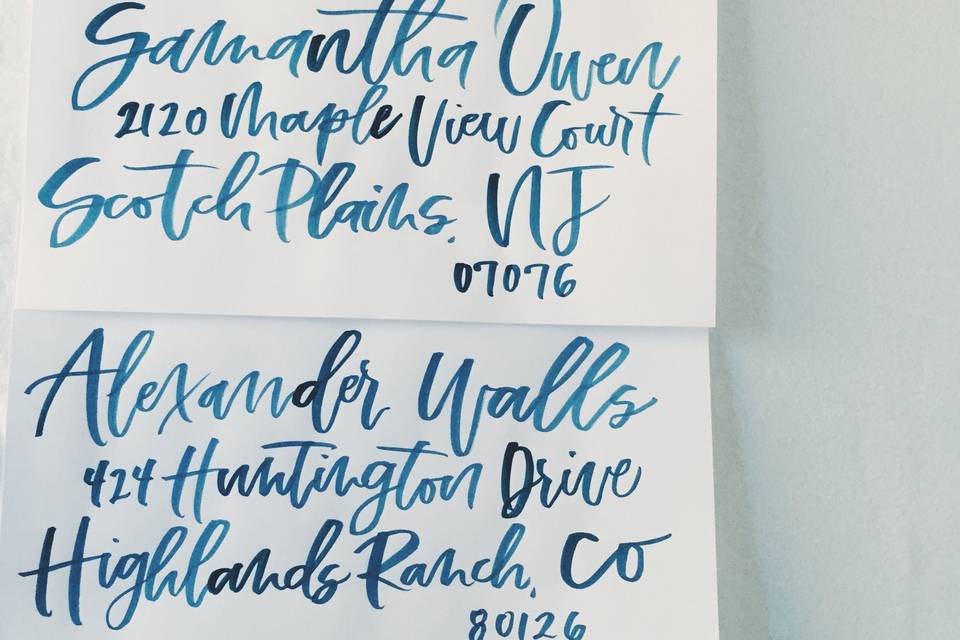 Samantha Owen
2120 Maple View Court
Scotch Plains, NJ
07076
Alexander Walls
424 Huntington Drive
Highlands Ranch, CO
80126